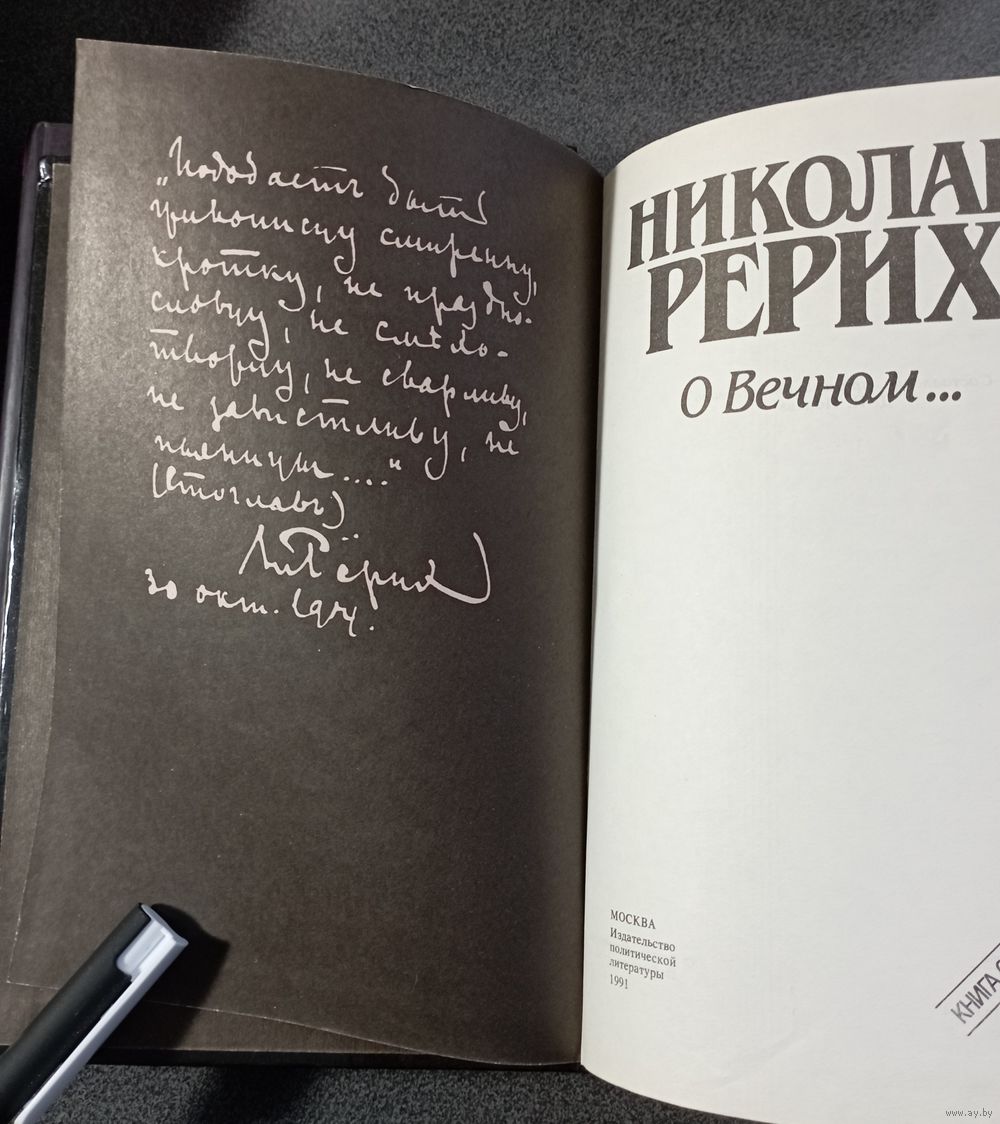 „Подобаетъ быти
живописцу смиренну,
кротку, не праздно-
словцу, не смѣхо-
творцу, не сварливу,
не завистливу, не
пьяницы...."
(Стоглавъ)
Рёрих
30 окт.
НИКОЛАЙ
РЕРИХ
О Вечном...
МОСКВА
Издательство
политической
литературы
1991
КНИГА
www.ay.by